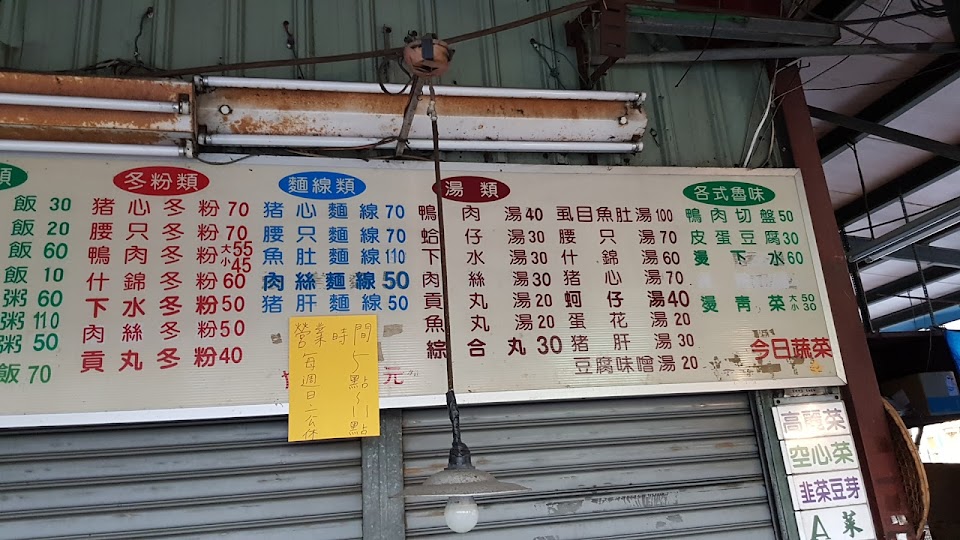 類
飯 30
飯 20
飯 60
飯 10
粥 60
粥 110
粥 50
飯 70
冬粉類
豬心冬粉 70
腰只冬粉 70
鴨肉冬粉 大55 小45
什錦冬粉 60
下水冬粉 50
肉絲冬粉 50
貢丸冬粉 40
麵線類
豬心麵線 70
腰只麵線 70
魚肚麵線 110
肉絲麵線 50
豬肝麵線 50
元
湯類
鴨肉湯 40
蛤仔湯 30
下水湯 30
肉絲湯 30
貢丸湯 20
魚丸湯 20
綜合丸 30
虱目魚肚湯 100
腰只湯 70
什錦湯 60
豬心湯 70
蚵仔湯 40
蛋花湯 20
豬肝湯 30
豆腐味噌湯 20
各式魯味
鴨肉切盤 50
皮蛋豆腐 30
燙下水 60
燙青菜 大50 小30
今日蔬菜
高麗菜
空心菜
韭菜豆芽
A菜
營業時間
5點~11點
每週日二公休